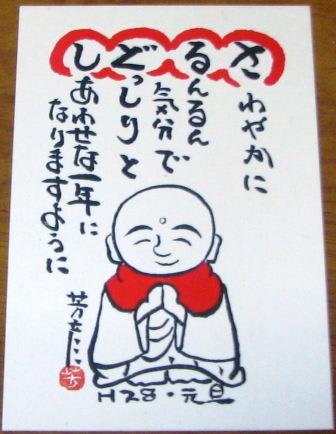 さわやかに
るんるん
気分で
どっしりと
しあわせな一年に
なりますように
芳
H28・元旦